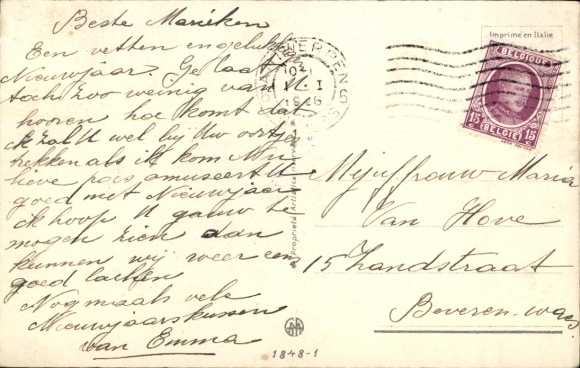 Beste Marieken
Een vetten en gelukkig
Nieuwjaar. Ge laat
toch zoo weinig van
hooren hoe komt dat
ik zal U wel bij Uw oortje
trekken als ik kom Nu
lieve poes amuseert U
goed met Nieuwjaar
ik hoop U gauw te
mogen zien dan
kunnen wij weer eens
goed lachen
Nogmaals vele
Nieuwjaarskussen
van Emma
Imprimé en Italie
ANTWERPEN
1926
BELGIQUE
15 (BELGIË) 15
Mejuffrouw Maria
Van Hove
15 Zandstraat
Beveren-Waes
1848-1